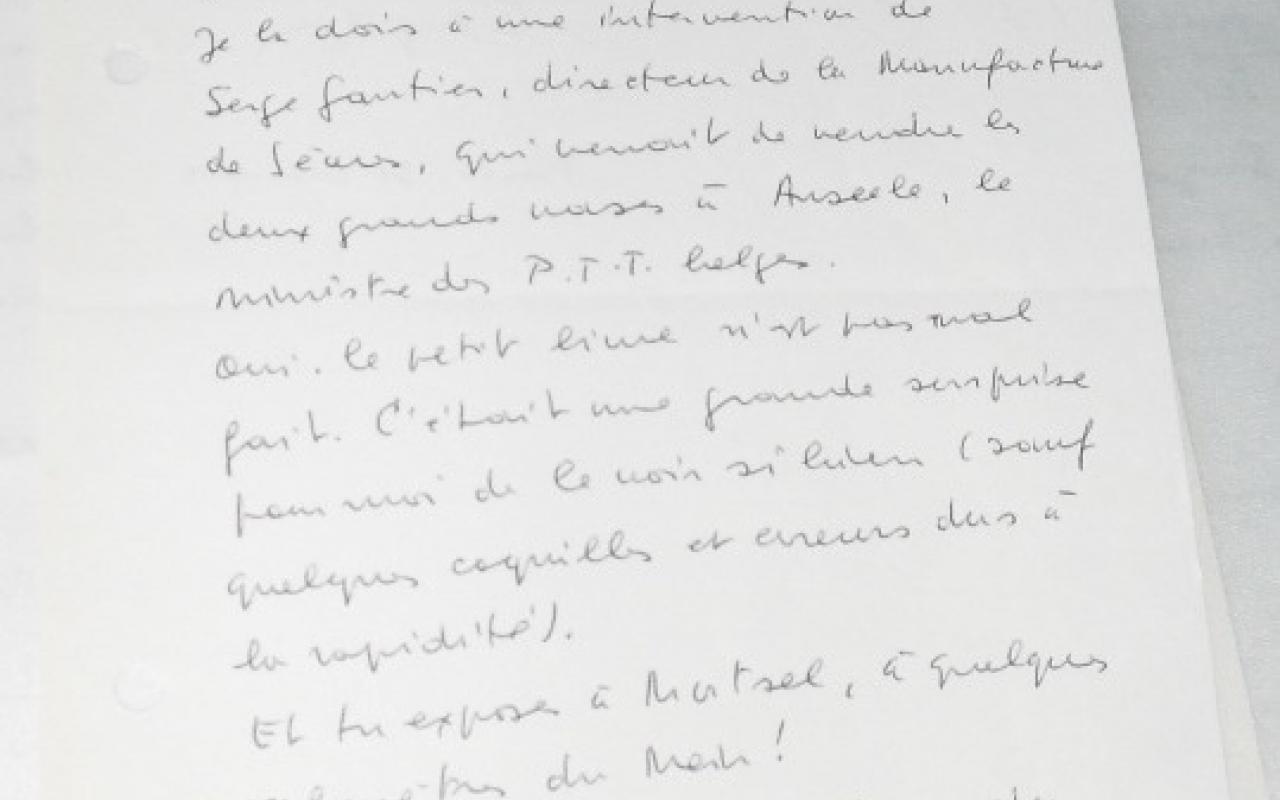 Je le dois à une intervention de
Serge Gautier, directeur de la Manufacture
de Sèvres, qui venait de vendre les
deux grands vases à Anseele, le
ministre des P.T.T. belges.
Oui. le petit livre n'est pas mal
fait. C'était une grande surprise
pour moi de le voir si bien (sauf
quelques coquilles et erreurs dus à
la rapidité).
Et tu exposes à Mortsel, à quelques
du Mein!